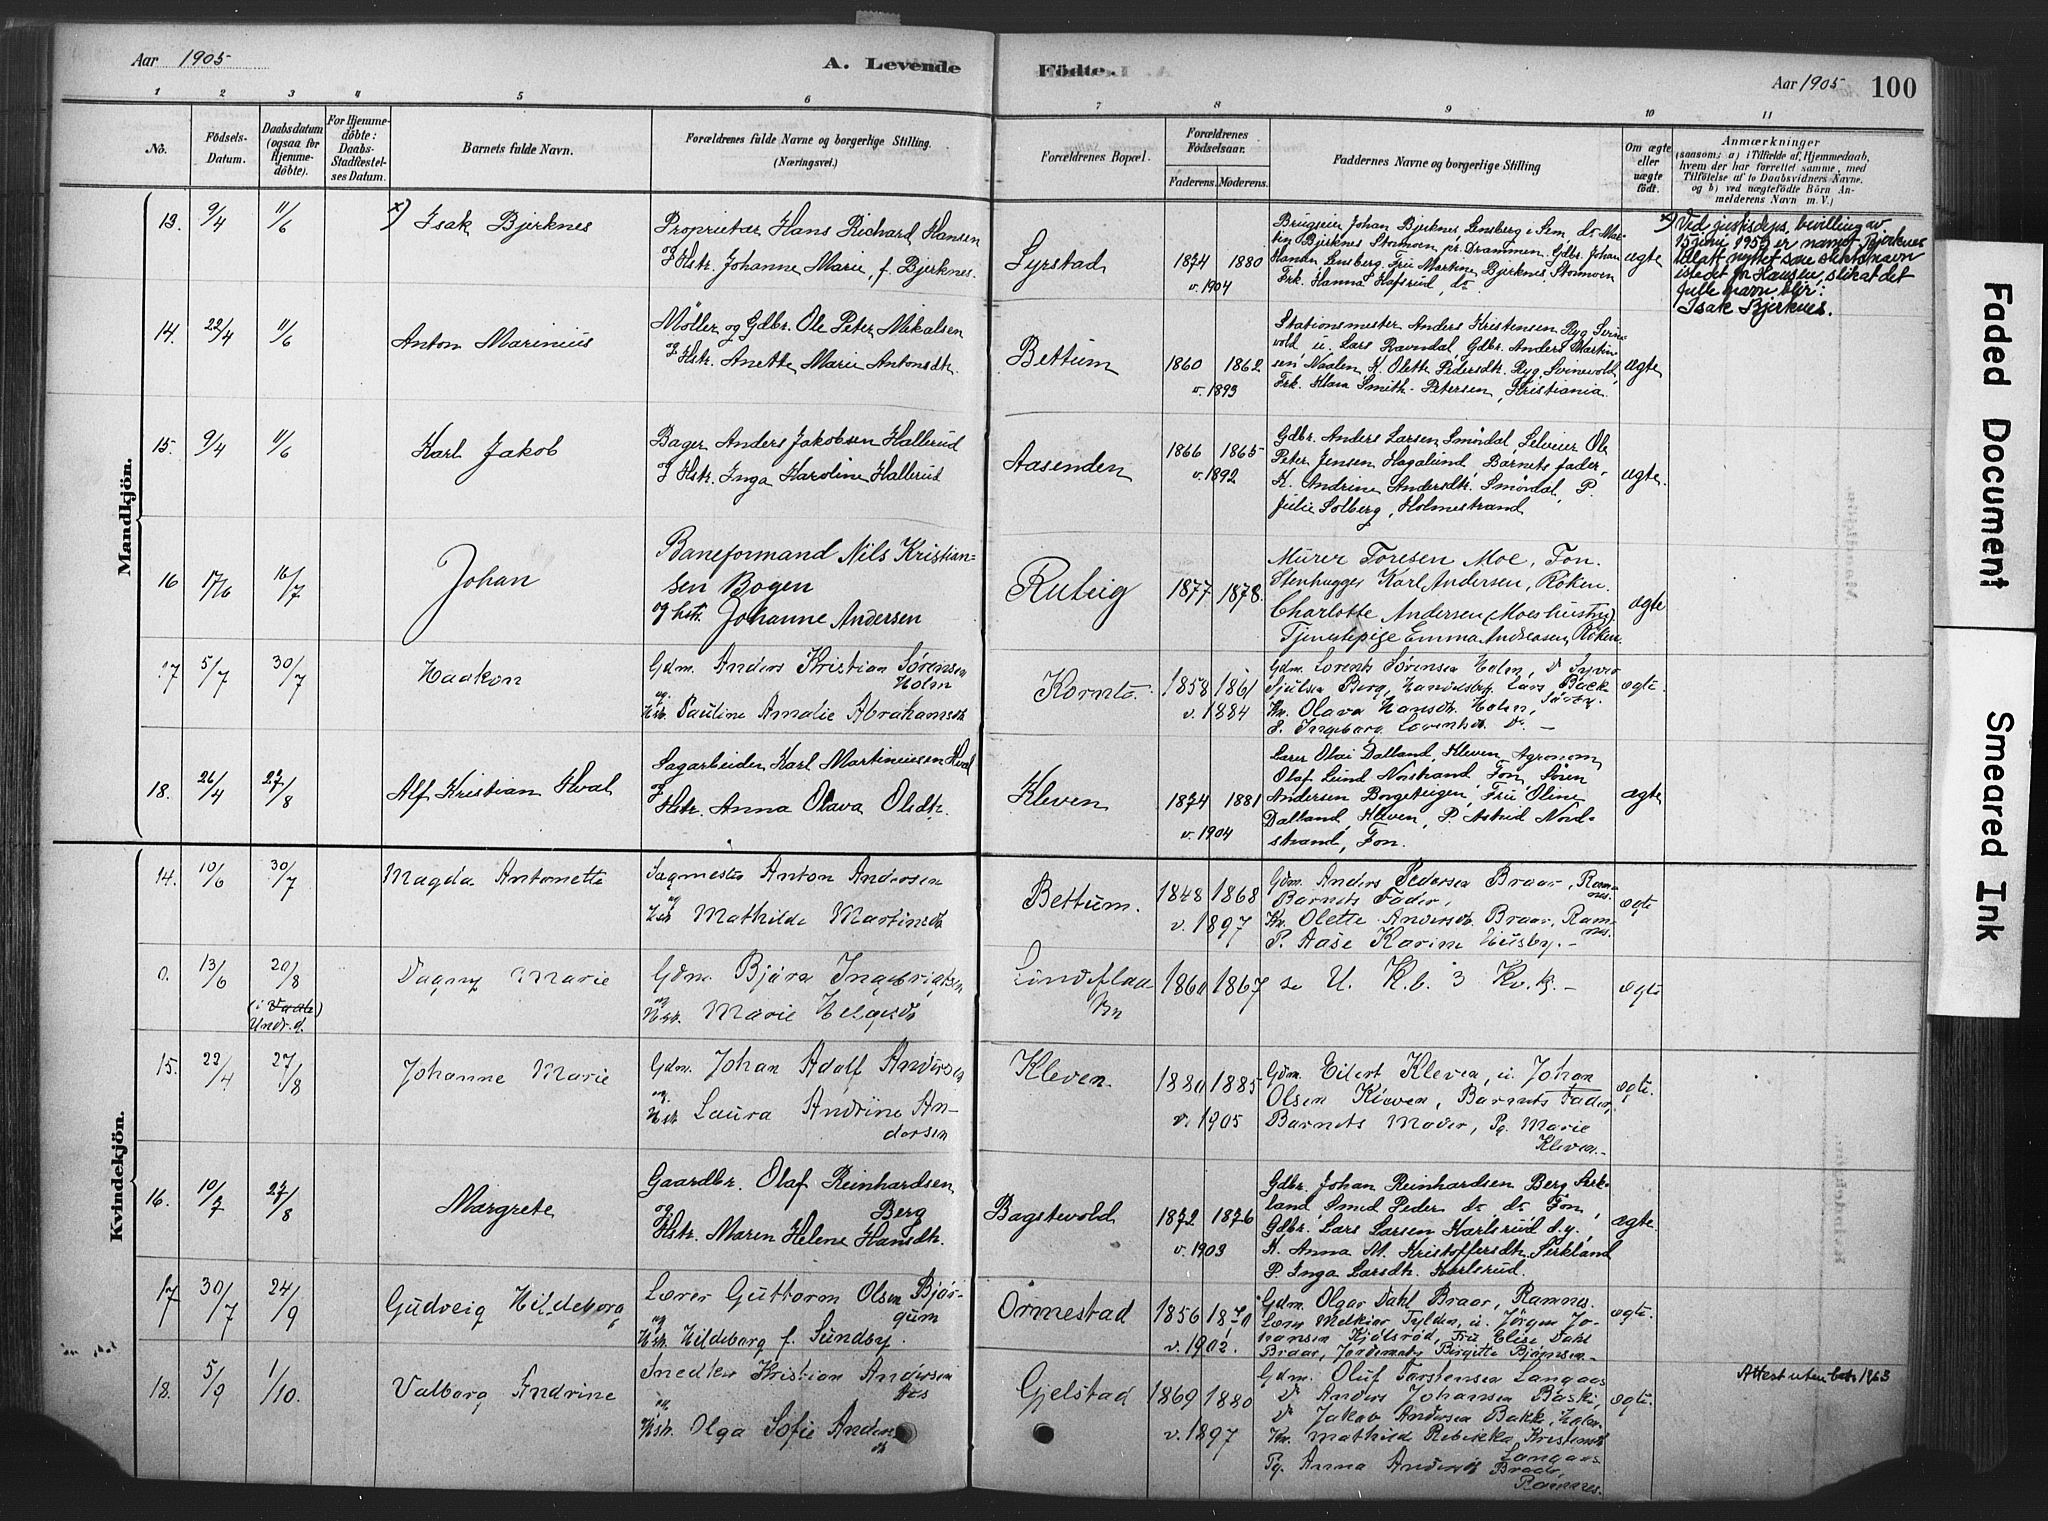 Aar 1905
A. Levende
Födte.
Aar 1905
100
1 2 3 4 5 6 7 8 9 10 11
No.
Födsels-
Datum.
Daabsdatum
(ogsaa for
Hjemme-
döbte).
For Hjemme-
döbte:
Daabs-
Stadfæstel-
ses Datum.
Barnets fulde Navn.
Forældrenes fulde Navne og borgerlige Stilling.
(Næringsvei.)
Forældrenes Bopæl.
Forældrenes
Födselsaar.
Faderens. Moderens.
Faddernes Navne og borgerlige Stilling
Om ægte
eller
uægte
födt.
Anmærkninger
(saasom: a) i Tilfælde af Hjemmedaab,
hvem der har forrettet samme, med
Tilföielse af to Daabsvidners Navne,
og b) ved uægtefödte Börn An-
melderens Navn m. V.)
Mandkjön.
13. 9/4 11/6 x) Isak Bjerknes
Proprietær Hans Richard Hansen
og Hstr. Johanne Marie, f. Bjerknes.
Syrstad
1874 1880
v. 1904
Brugseier Johan Bjerknes Lensberg i Sem, do Mar-
tin Bjerknes Stormoen pr. Drammen, Gdbr. Johan
Hansen Lensberg, Fru Martine Bjerknes Stormoen
Frk. Hanna Hafsrud, do
ægte
x) Ved justisdeps. bevilling av
15 juni 1953 er navnet Bjerknes
tillatt nyttet som slektsnavn
istedet for Hansen, slik at det
fulle navn blir:
Isak Bjerknes.
14. 22/4 11/6 Anton Marinius
Møller og Gdbr. Ole Peter Mikalsen
og Hstr. Anette Marie Antonsdtr.
Bettum
1860 1862
v. 1893
Stationsmester Anders Kristensen Ryg Svine-
vold, u. Lars Ravndal, Gdbr. Anders Martin-
sen Naalen, K. Olette Pedersdtr. Ryg Svinevold,
Frk. Klara Smith-Petersen, Kristiania.
ægte
15. 9/4 11/6 Karl Jakob
Bager Anders Jakobsen Hallerud
og Hstr. Inga Karoline Hallerud
Aasenden
1866 1865
v. 1892
Gdbr. Anders Larsen Smørdal, Selveier Ole
Peter Jensen Hagalund, Barnets fader,
K. Andrine Andersdtr. Smørdal, P.
Julie Solberg, Holmestrand
ægte.
16 17/6 16/7 Johan
Baneformand Nils Kristian-
sen Bogen
og hstr. Johanne Andersen
Rutvig
1877 1878.
Murer Toresen Moe, Fon.
Stenhugger Karl Andersen, Röken.
Charlotte Andersen (Moes hustru)
Tjenestepige Emma Andreasen, Röken.
ægte
17 5/7 30/7 Haakon
Gdm. Anders Kristian Sørensen
Holm
og
Hstr. Pauline Amalie Abrahamsdtr
Kornto.
1858 1861
v. 1884
Gdm. Lorents Sørensen Holm, Do Syver
Sjulsen Berg,
Kv. Olava Hansdtr. Holm,
P. Ingeborg Lorentsdtr. Do. —
ægte.
18. 26/4 27/8 Alf Kristian Hval
Sagarbeider Karl Martiniussen Hval
og
Hstr. Anna Olava Olsdtr.
Kleven
1874 1881
v. 1904
Lærer Olai Dalland, Kleven, Agronom
Olaf Lund Norstrand, Fon, Sören
Andersen Borgeteigen, Fru Oline
Dalland, Kleven, P. Astrid Nord-
strand, Fon.
ægte
Kvindekjön.
14. 10/6 30/7 Magda Antonette
Sagmester Anton Andersen
og
Hstr. Mathilde Martinsdtr
Bettum.
1848 1868
v. 1897
Gdm. Anders Pedersen Braar, Ram-
nes.
Barnets Fader,
Kv. Olette Andersdtr. Braar, Ram-
nes.
P. Aase Karine Husby. —
ægte
0. 13/6 20/8 Dagny Marie
Undr.d.
Gdm. Bjarne Ingebrigtsen
og
Hstr. Marie Helgesdtr
1860 1867
se U. K.b. 3 Kv. k. —
ægte
15. 22/4 27/8 Johanne Marie
Gdm. Johan Adolf Andersen
og.
Hstr. Laura Andrine An-
dersen
Kleven.
1880 1885
v. 1905
Gdm. Eilert Kleven, u. Johan
Olsen Kleven, Barnets Fader,
Barnets Moder, Pg. Marie
Kleven.
ægte.
16. 10/7 27/8 Margrete
Gaardbr. Olaf Reinhardsen
Berg
og
Hstr. Maren Helene Hansdtr.
Bagstevold
1872 1876
v. 1903
Gdbr. Johan Reinhardsen Berg Sirk-
land, Smed Peder do do Fon,
Gdbr. Lars Larsen Karlsrud d.y.,
K. Anna M. Kristoffersdtr. Sirkland
P. Inga Larsdtr. Karlsrud.
ægte.
17 30/7 24/9 Gudveig Hildeborg
Lærer Guttorm Olsen Bjør-
gum
og
Hstr. Hildeborg f. Sundby.
Ormestad
1856 1870
v. 1902.
Gdm. Olgar Dahl Braar, Ramnes.
Lærer Melkior Tylden, u. Jørgen Jo-
hansen Kjølsrød, Fru Elise Dahl
Braar, Jordemoder Birgitte Bjørnsen.
ægte.
18. 5/9 1/10. Valborg Andrine
Snedker Kristian Andersen
og
Hstr. Olga Sofie Anders-
dtr
Gjelstad
1869 1880
v. 1897
Gdm. Oluf Torstensen Langaas
Do Anders Johansen
Do Jakob Andersen Bakke,
Kv. Mathild Rebekka Kristensdtr
Langaas
Pg. Anna Andersdtr Braar,
Ramnes.
ægte.
Attest 1963
Faded Document
Smeared Ink